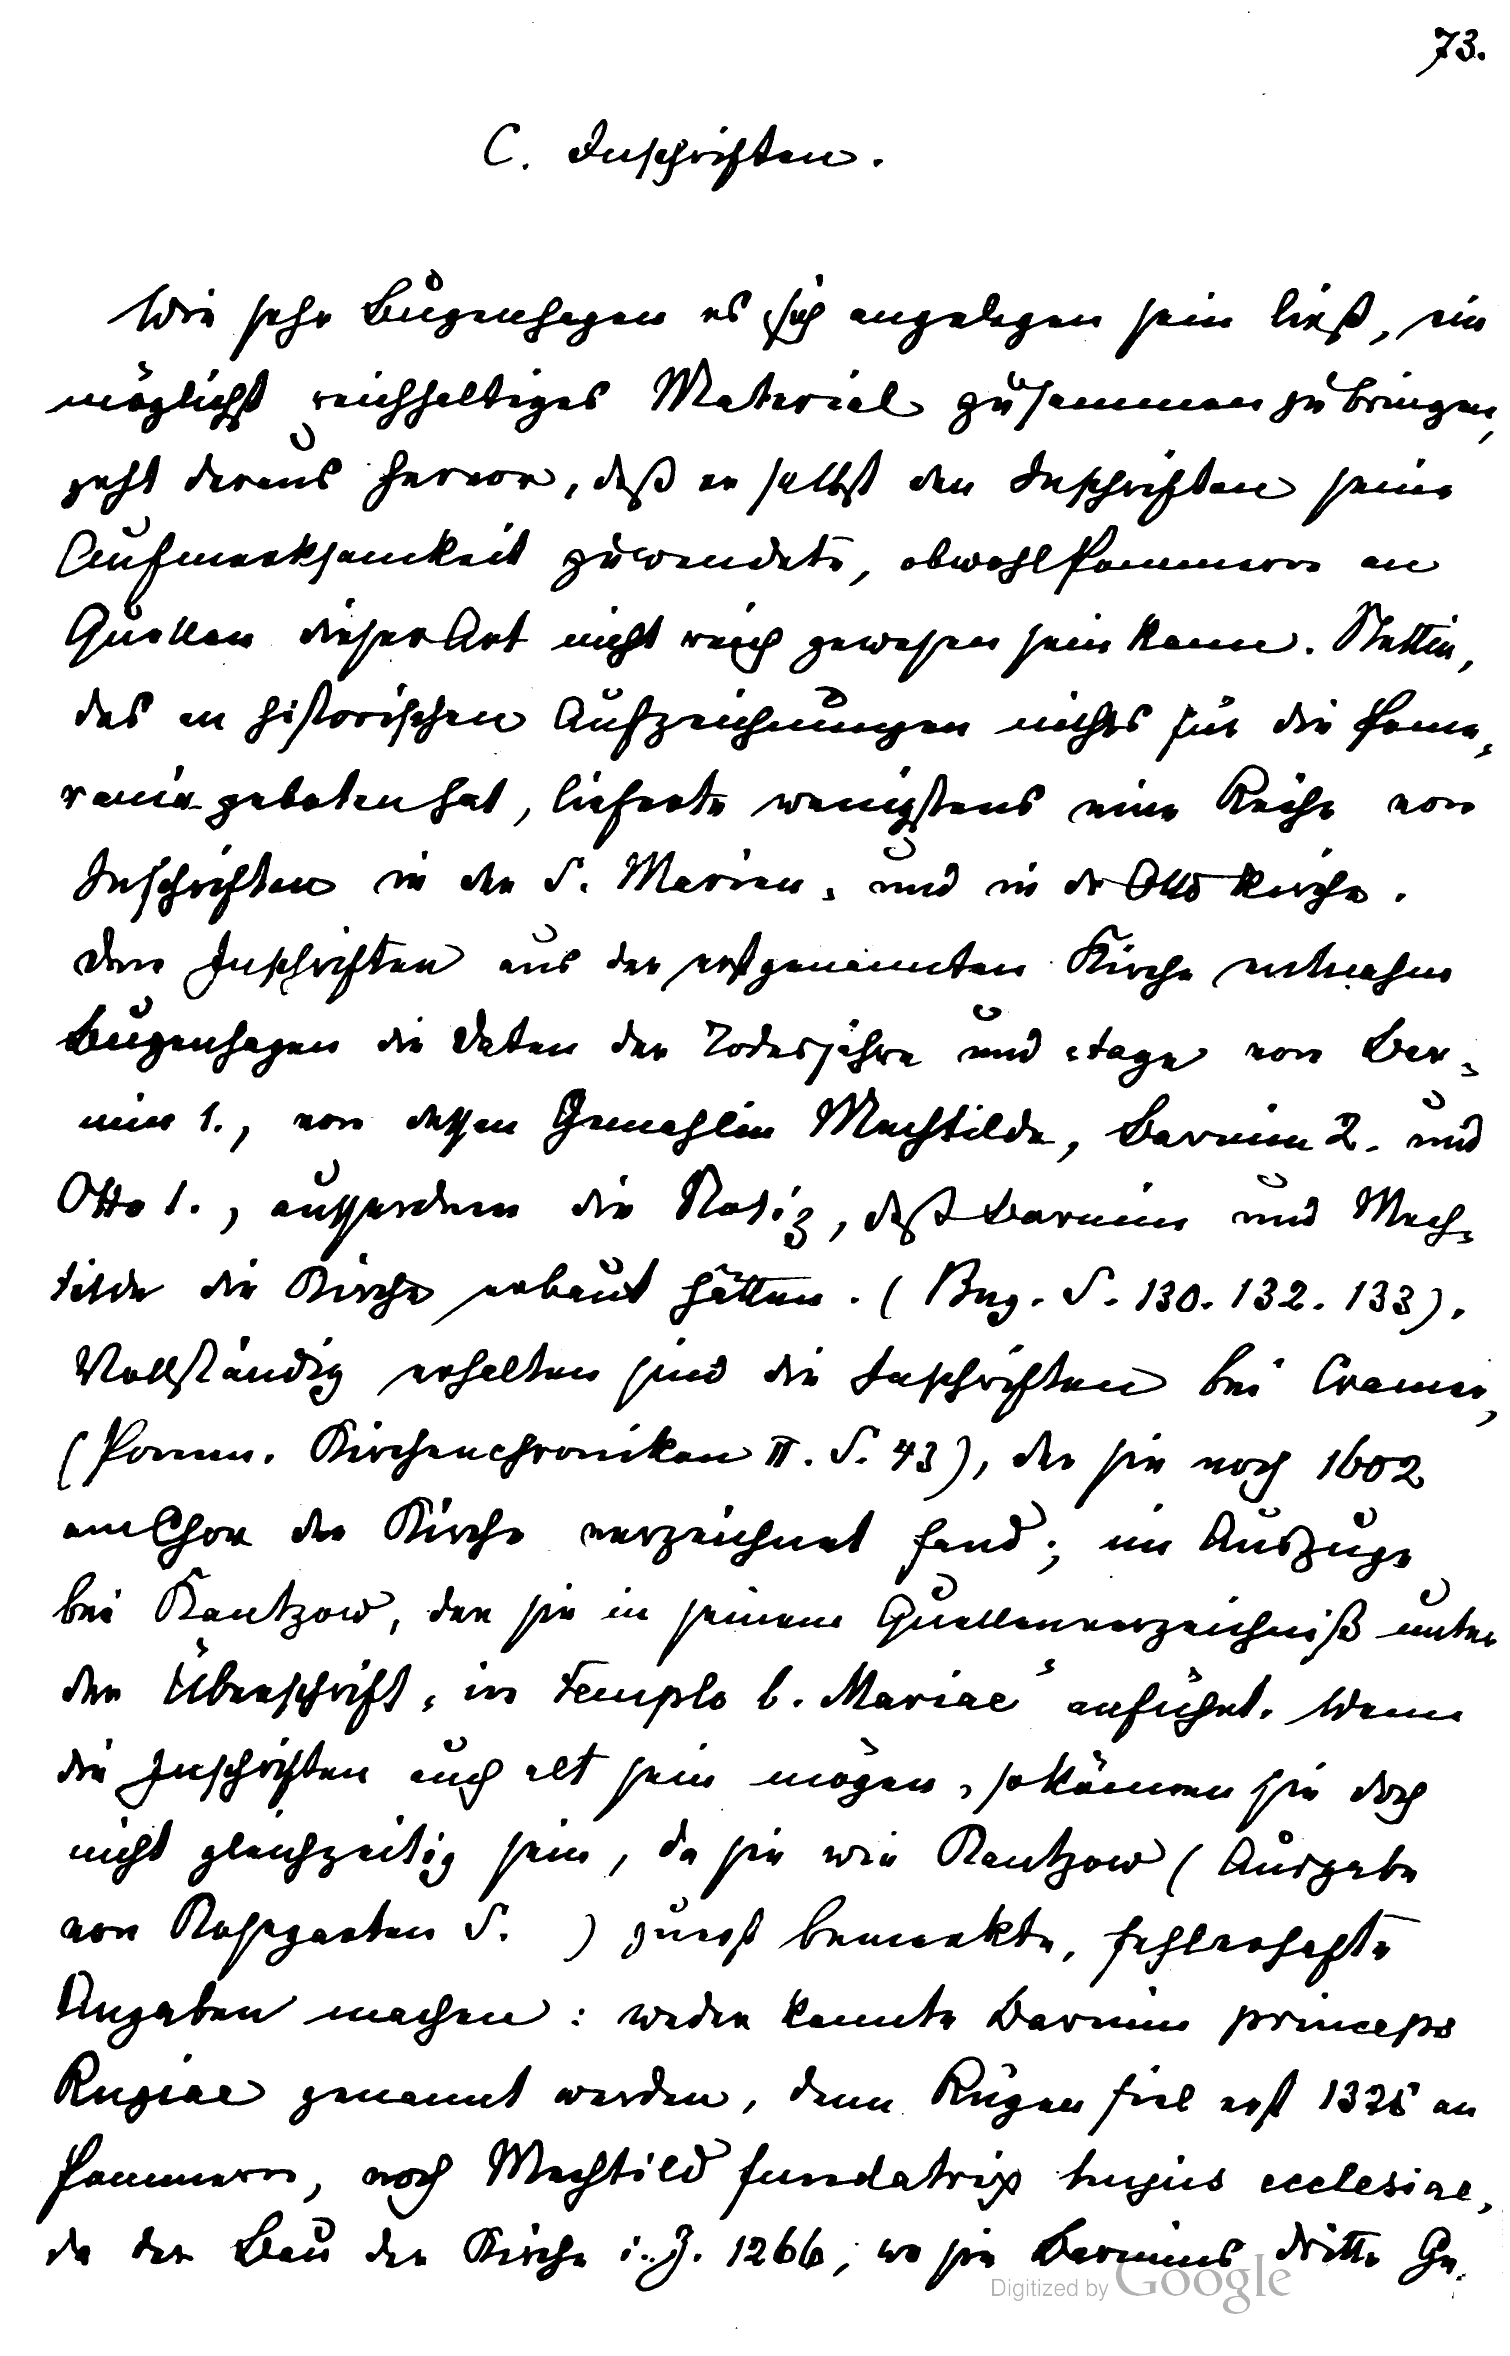 73.
C. Inschriften.
Wie sehr Bugenhagen es sich angelegen sein ließ, ein
möglichst reichhaltiges Material zusammenzubringen,
geht daraus hervor, daß er selbst den Inschriften seine
Aufmerksamkeit zuwendete, obwohl Pommern an
Quellen dieser Art nicht reich gewesen sein kann. Stettin,
das an historischen Aufzeichnungen nichts für die Pome-
rania geboten hat, lieferte wenigstens eine Reihe von
Inschriften in der S. Marien- und in der Otto kirche.
Den Inschriften aus der erstgenannten Kirche entnahm
Bugenhagen die Daten der Todesjahre und -tage von Bar-
nim 1., von dessen Gemahlin Mechtilde, Barnim 2. und
Otto 1., ausserdem die Notiz, daß Barnim und Mech-
tilde die Kirche erbaut hätten. (Bug. S. 130. 132. 133).
Vollständig erhalten sind die Inschriften bei Cramer,
(Pomm. Kirchenchroniken II. S. 43), der sie noch 1602
am Chor der Kirche verzeichnet fand; im Auszuge
bei Kantzow, der sie in seinem Quellenverzeichniß unter
der Überschrift „in templo b. Mariae“ anführt. Wenn
die Inschriften auch alt sein mögen, so können sie doch
nicht gleichzeitig sein, da sie wie Kantzow (Ausgabe
von Kosegarten S. ) zuerst bemerkte, fehlerhafte
Angaben machen: weder konnte Barnim princeps
Rugiae genannt werden, denn Rügen fiel erst 1325 an
Pommern, noch Mechtild fundatrix hujus ecclesiae,
da der Bau der Kirche i. J. 1266, wo sie Barnims dritte Ge-
Digitized by Google